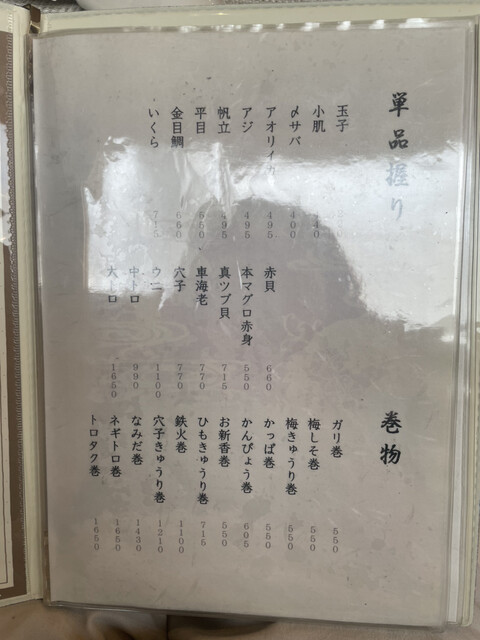 単品握り
玉子
小肌
〆サバ
アオリイカ 495
アジ 495
帆立 495
平目 550
金目鯛 660
いくら 715
赤貝 660
本マグロ赤身 550
真ツブ貝 715
車海老 770
穴子 770
ウニ 1100
中トロ 990
大トロ 1650
巻物
ガリ巻 550
梅しそ巻 550
梅きゅうり巻 550
かっぱ巻 550
かんぴょう巻 605
お新香巻 550
ひもきゅうり巻 715
鉄火巻 1100
穴子きゅうり巻 1210
なみだ巻 1430
ネギトロ巻 1650
トロタク巻 1650